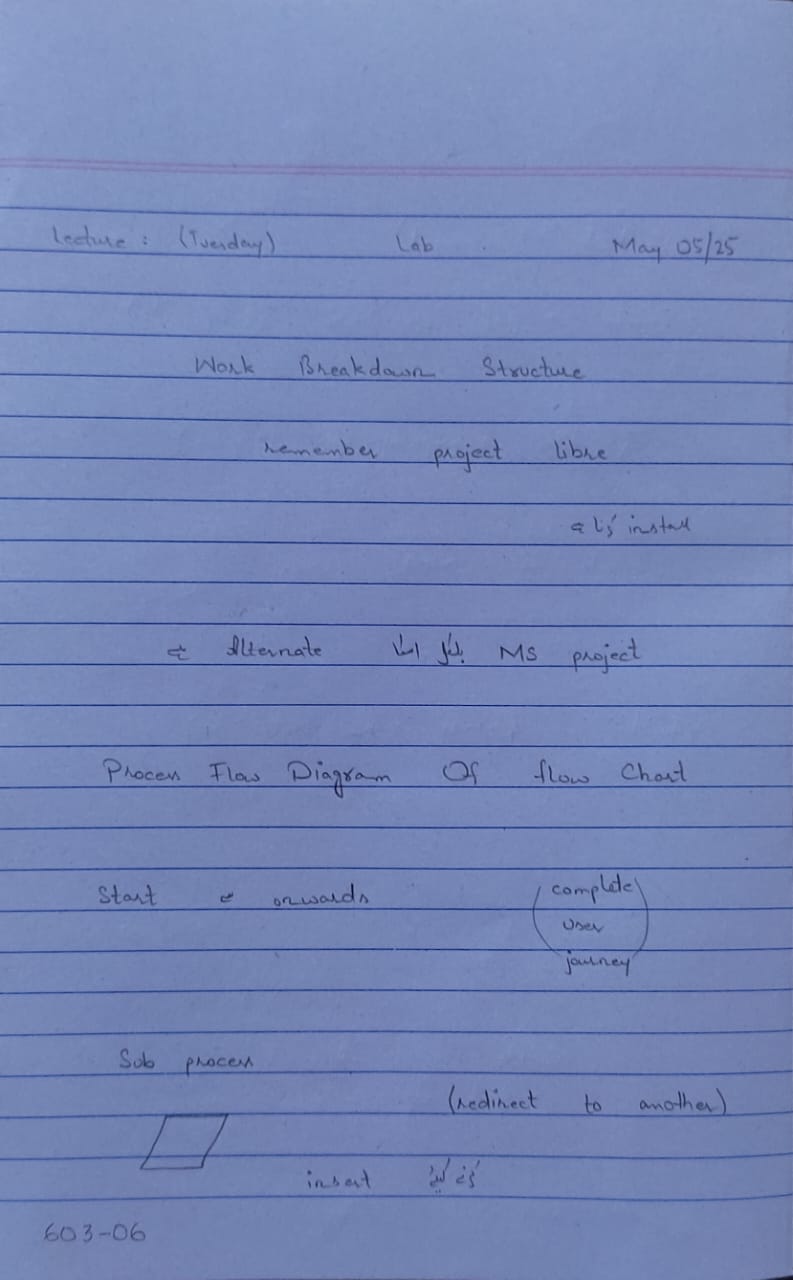 Lecture : (Tuesday) Lab May 05/25
Work Breakdown Structure
remember project libre
install کرنا ہے
MS project بلکل اسکا Alternate ہے
Process Flow Diagram Of flow Chart
Start سے onwards (complete user journey)
Sub process
(redirect to another)
insert کرنے کیلئے
603-06